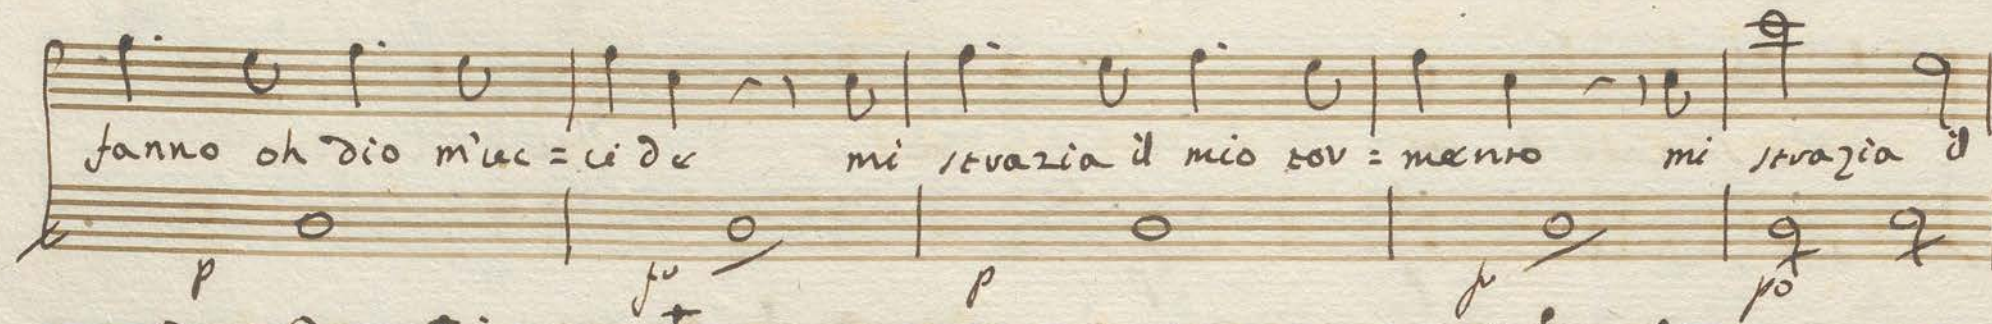 fanno oh dio m'uc = ci de mi strazia il mio tor = mento mi strazia il
p fr p fr po